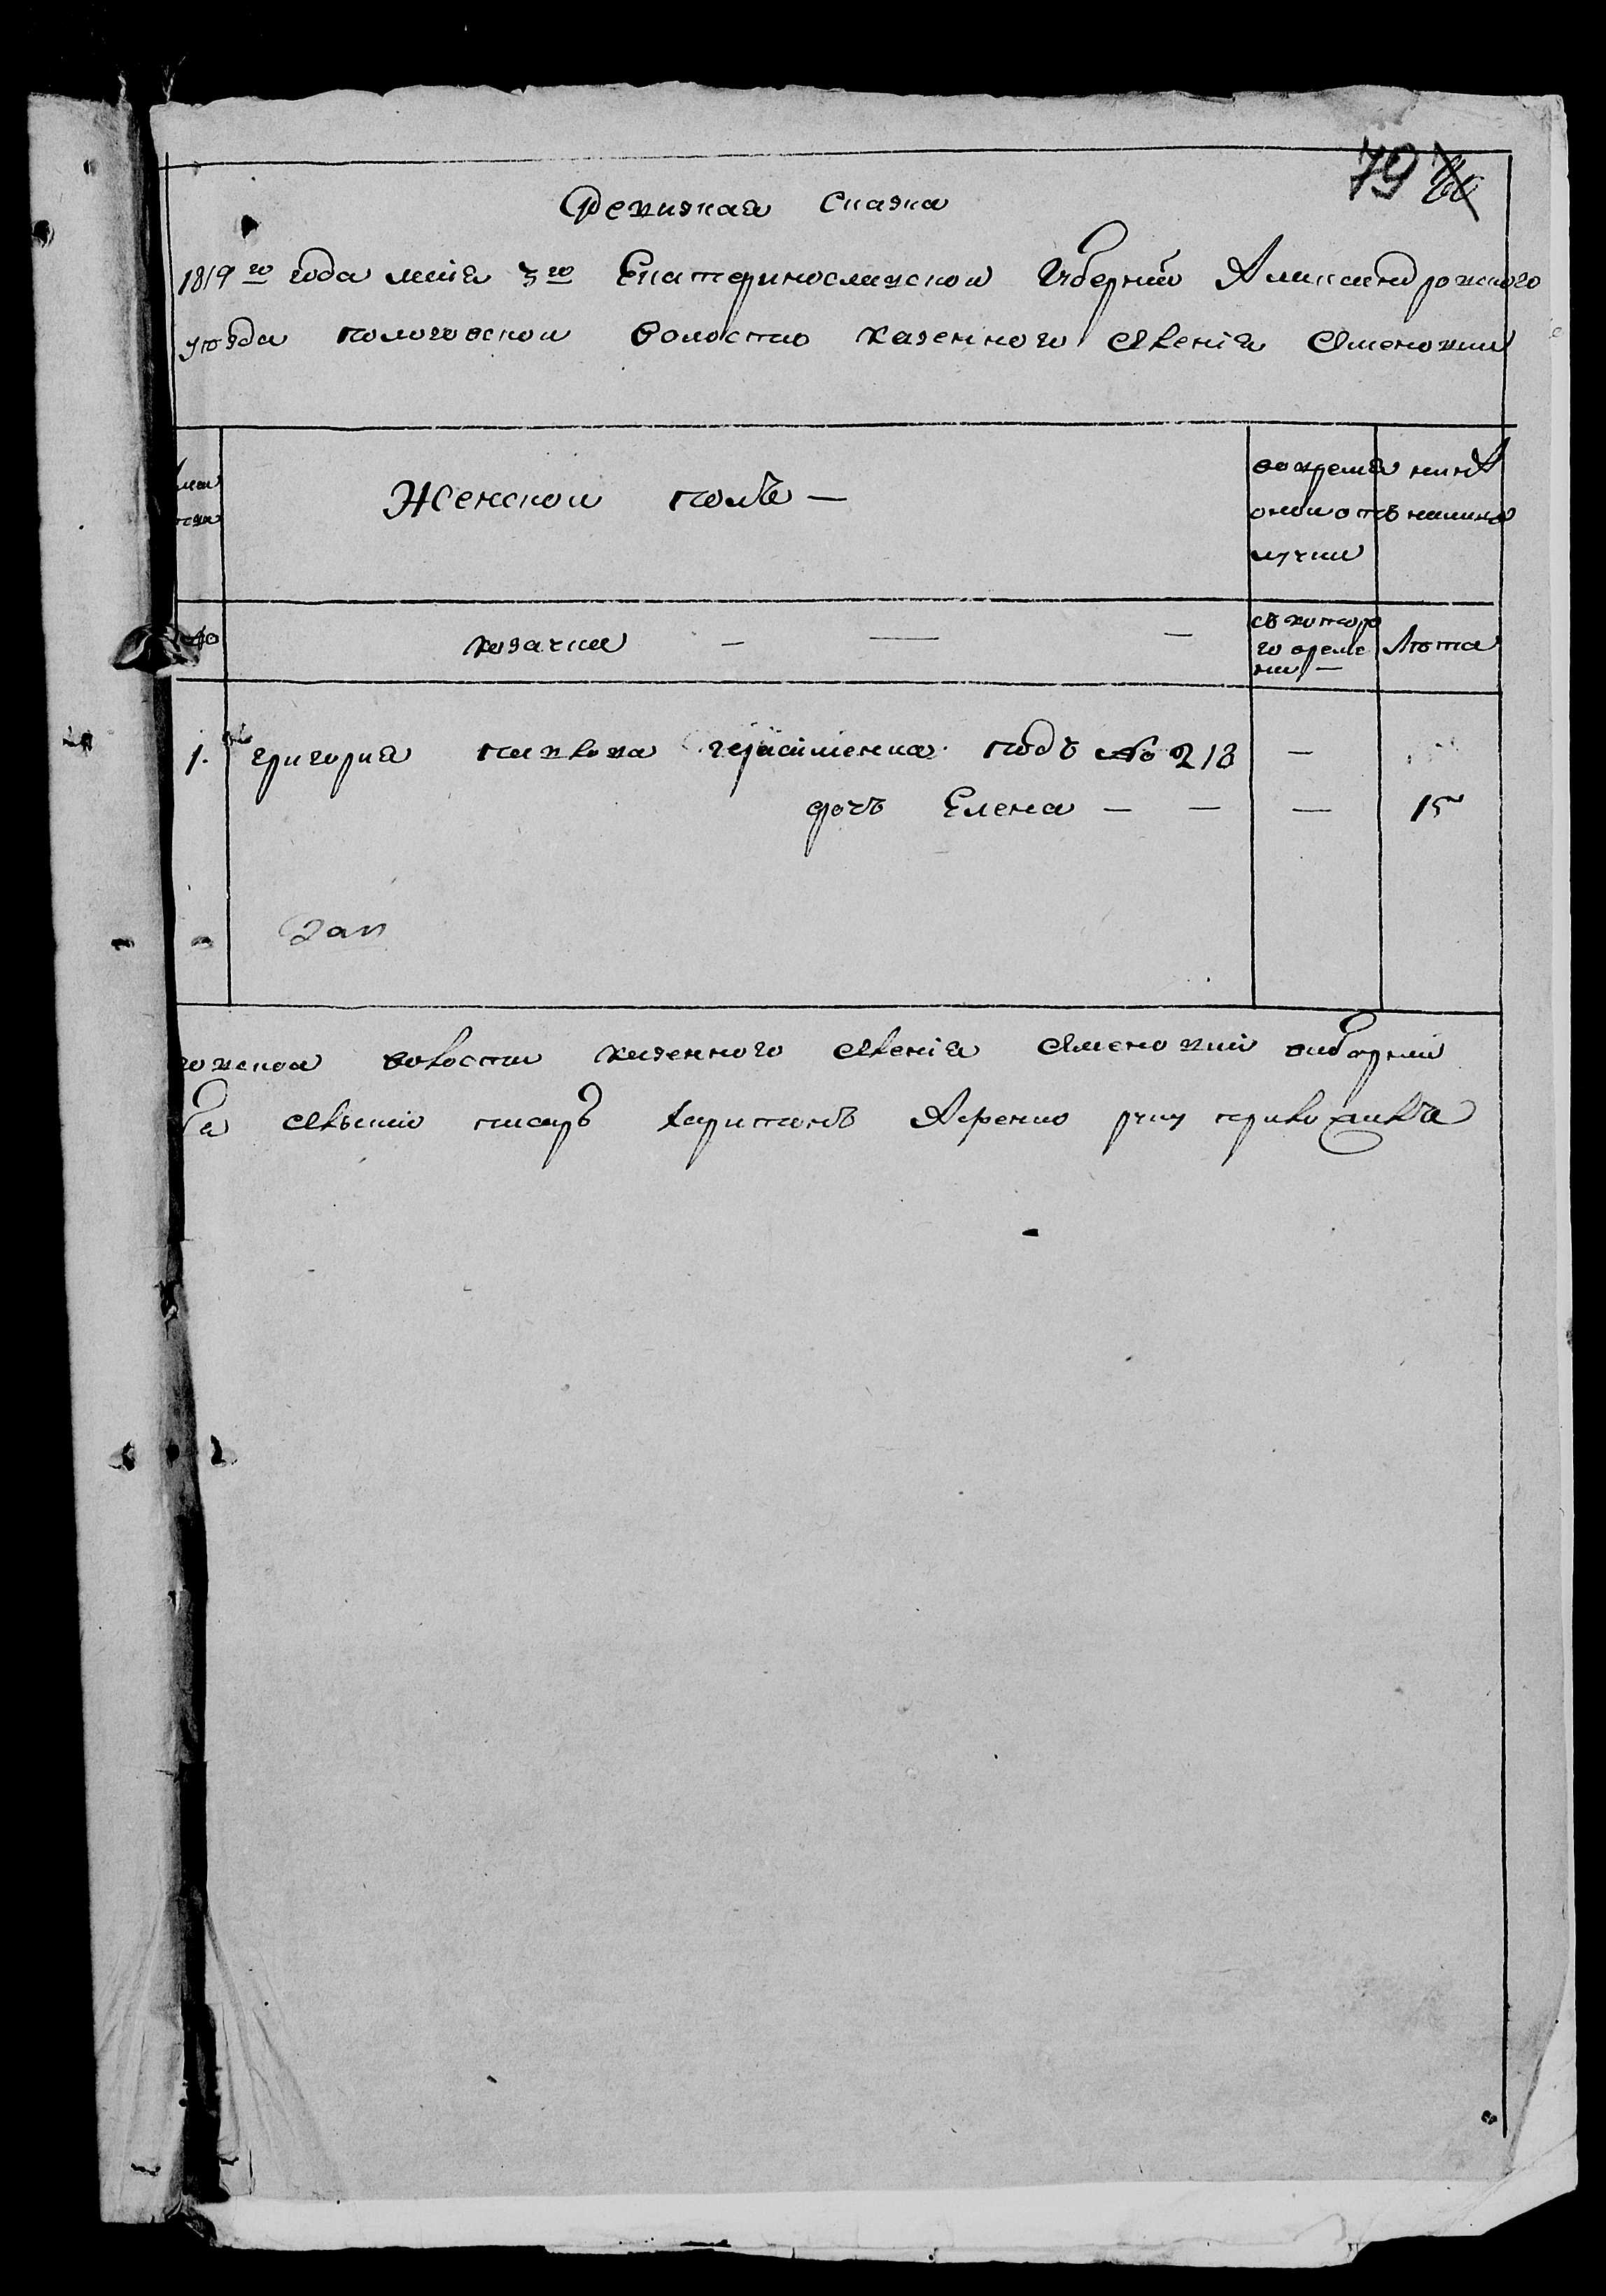 79 80
Ревизкая Сказка
1819го года маія 3го Екатеринославской Губерніи Александровского
уезда пологовской волостю казенного селенія Семеновки
Женской полъ —
во время
оной от
лучки
ныне
налицо
№
козачки — — —
съ которо
го време
ни —
Лета
1. григория павлова герасименка подъ № 218 —
дочъ Елена — — — 15
волости казенного селенія Семеновки виборній
селскіи писаръ Харитонъ руку приложилъ